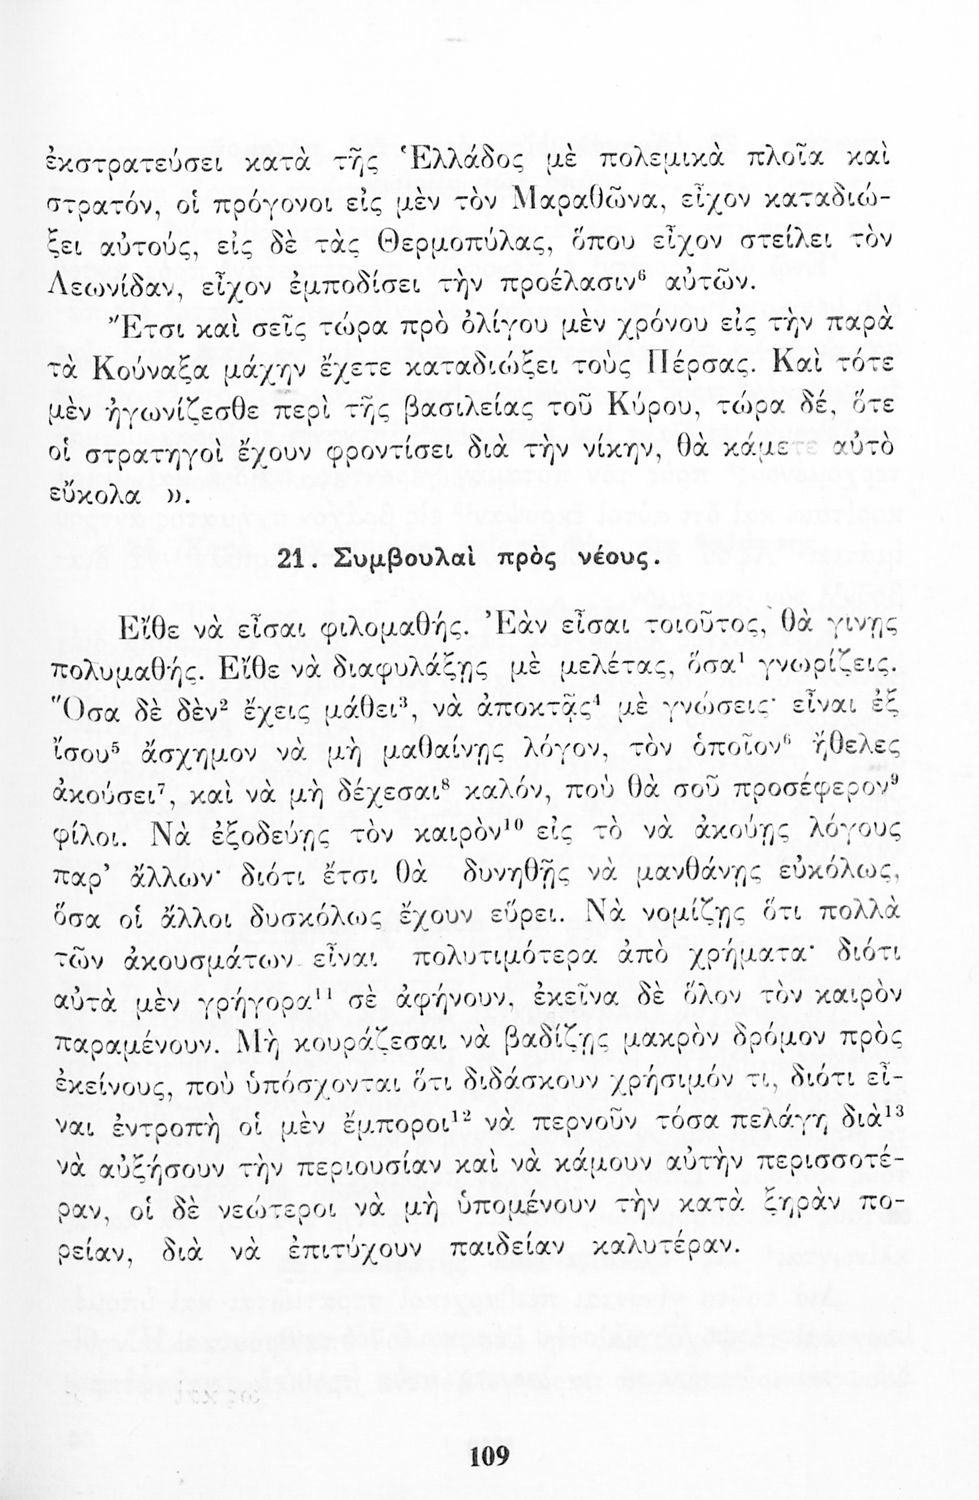 ἐκστρατεύσει κατὰ τῆς Ἑλλάδος μὲ πολεμικὰ πλοῖα καὶ
στρατόν, οἱ πρόγονοι εἰς μὲν τὸν Μαραθῶνα, εἶχον καταδιώ-
ξει αὐτούς, εἰς δὲ τὰς Θερμοπύλας, ὅπου εἶχον στείλει τὸν
Λεωνίδαν, εἶχον ἐμποδίσει τὴν προέλασιν⁶ αὐτῶν.
Ἔτσι καὶ σεῖς τώρα πρὸ ὀλίγου μὲν χρόνου εἰς τὴν παρὰ
τὰ Κούναξα μάχην ἔχετε καταδιώξει τοὺς Πέρσας. Καὶ τότε
μὲν ἠγωνίζεσθε περὶ τῆς βασιλείας τοῦ Κύρου, τώρα δέ, ὅτε
οἱ στρατηγοὶ ἔχουν φροντίσει διὰ τὴν νίκην, θὰ κάμετε αὐτὸ
εὔκολα ».
21. Συμβουλαὶ πρὸς νέους.
Εἴθε νὰ εἶσαι φιλομαθής. Ἐὰν εἶσαι τοιοῦτος, θὰ γινῃς
πολυμαθής. Εἴθε νὰ διαφυλάξῃς μὲ μελέτας, ὅσα¹ γνωρίζεις.
Ὅσα δὲ δὲν² ἔχεις μάθει³, νὰ ἀποκτᾷς⁴ μὲ γνώσεις· εἶναι ἐξ
ἴσου⁵ ἄσχημον νὰ μὴ μαθαίνῃς λόγον, τὸν ὁποῖον⁶ ἤθελες
ἀκούσει⁷, καὶ νὰ μὴ δέχεσαι⁸ καλόν, ποὺ θὰ σοῦ προσέφερον⁹
φίλοι. Νὰ ἐξοδεύῃς τὸν καιρὸν¹⁰ εἰς τὸ νὰ ἀκούῃς λόγους
παρ’ ἄλλων· διότι ἔτσι θὰ δυνηθῇς νὰ μανθάνῃς εὐκόλως,
ὅσα οἱ ἄλλοι δυσκόλως ἔχουν εὕρει. Νὰ νομίζῃς ὅτι πολλὰ
τῶν ἀκουσμάτων εἶναι πολυτιμότερα ἀπὸ χρήματα· διότι
αὐτὰ μὲν γρήγορα¹¹ σὲ ἀφήνουν, ἐκεῖνα δὲ ὅλον τὸν καιρὸν
παραμένουν. Μὴ κουράζεσαι νὰ βαδίζῃς μακρὸν δρόμον πρὸς
ἐκείνους, ποὺ ὑπόσχονται ὅτι διδάσκουν χρήσιμόν τι, διότι εἶ-
ναι ἐντροπὴ οἱ μὲν ἔμποροι¹² νὰ περνοῦν τόσα πελάγη διὰ¹³
νὰ αὐξήσουν τὴν περιουσίαν καὶ νὰ κάμουν αὐτὴν περισσοτέ-
ραν, οἱ δὲ νεώτεροι νὰ μὴ ὑπομένουν τὴν κατὰ ξηρὰν πο-
ρείαν, διὰ νὰ ἐπιτύχουν παιδείαν καλυτέραν.
109